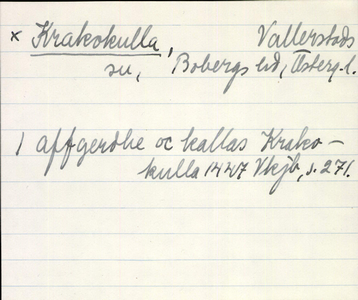 × Krakokulla, Vallerstads
sn, Bobergs hd, Österg. l.
1 affgerdhe oc kallas Krako-
kulla 1447 Vkjb, s. 271.